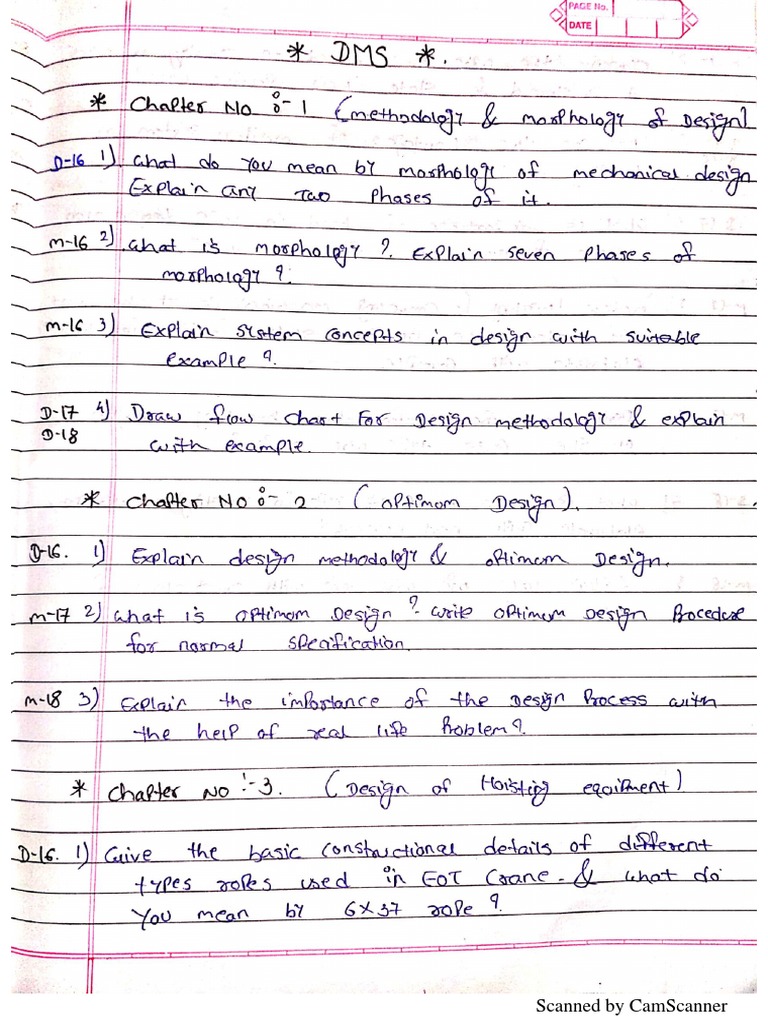 PAGE No.
DATE
* DMS *.
* Chapter No :- 1 (methodology & morphology of Design)
D-16 1) What do you mean by morphology of mechanical design
Explain any Two Phases of it.
M-16 2) What is morphology ? Explain seven Phases of
morphology ?
M-16 3) Explain system concepts in design with suitable
example ?
D-17 4) Draw flow chart For Design methodology & explain
D-18 with example.
* Chapter No :- 2 (Optimum Design).
D-16. 1) Explain design methodology & optimum Design.
M-17 2) What is optimum Design ? write optimum Design Procedure
for normal specification.
M-18 3) Explain the importance of the Design Process with
the help of real life Problem ?
* Chapter No :- 3. (Design of Hoisting equipment)
D-16. 1) Give the basic constructional details of different
types ropes used in EOT Crane. & what do
You mean by 6x37 rope ?
Scanned by CamScanner